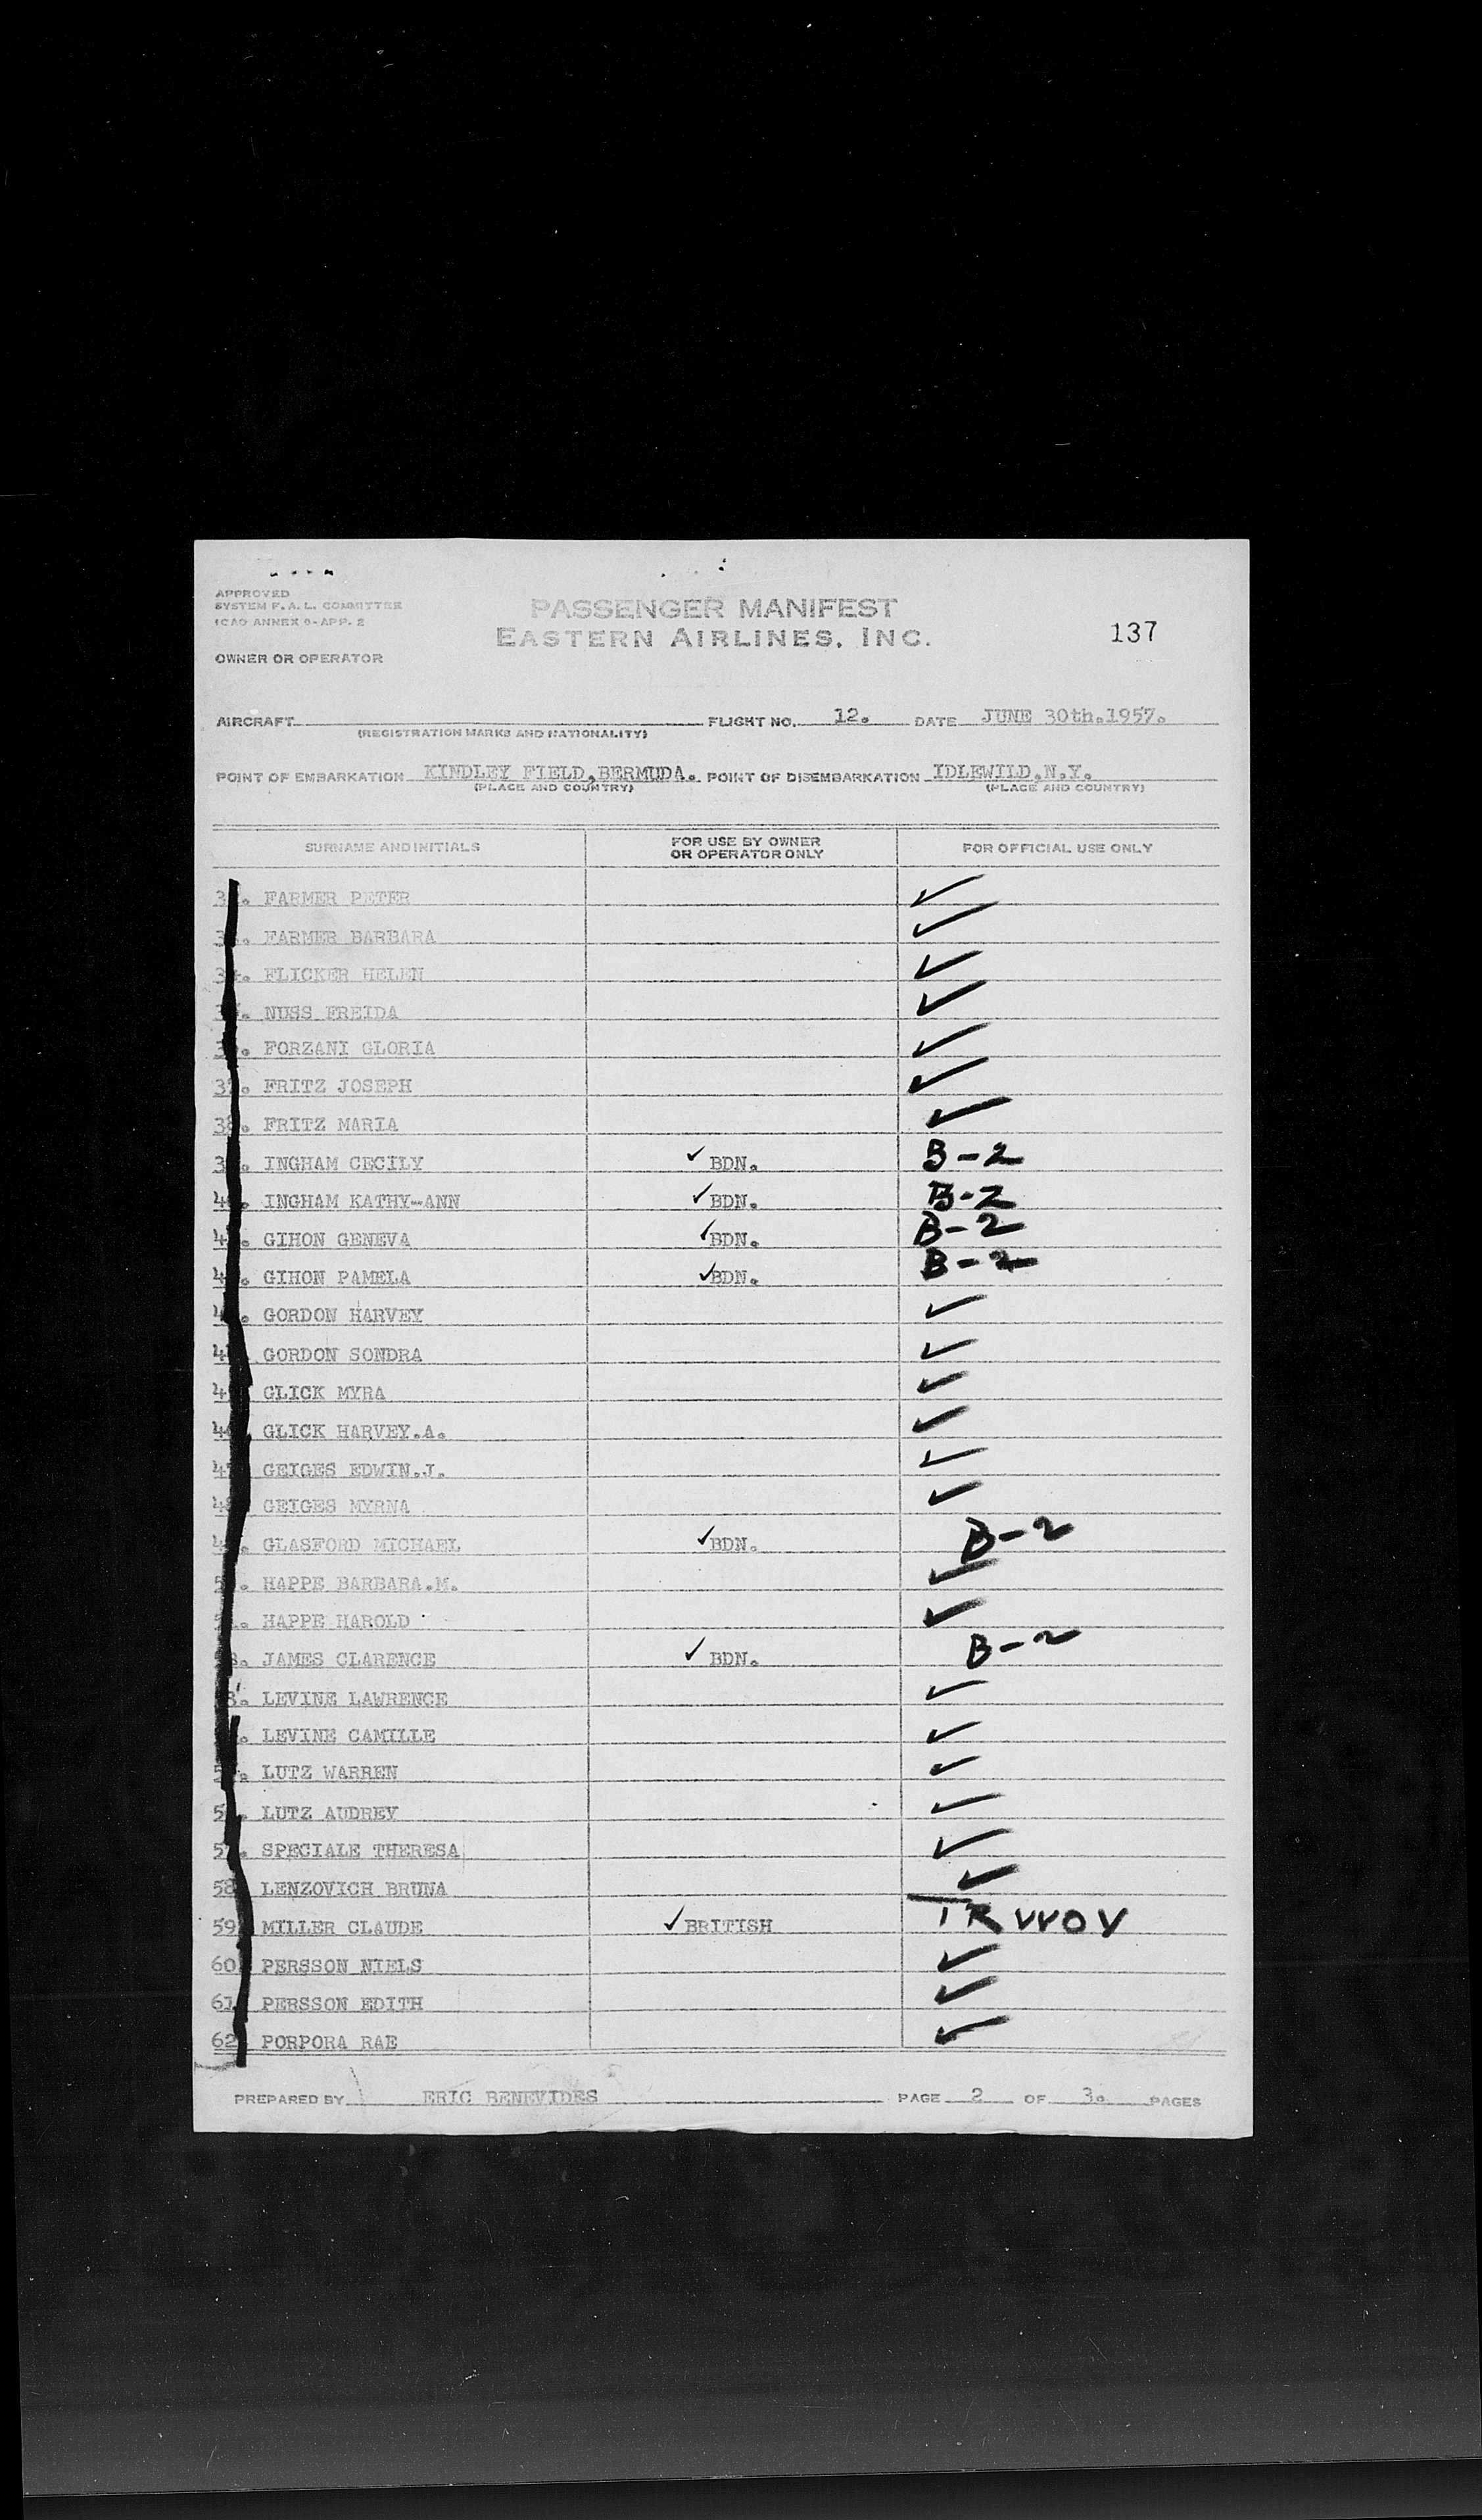 APPROVED
SYSTEM F. A. L. COMMITTEE
ICAO ANNEX 9-APP. 2
PASSENGER MANIFEST
EASTERN AIRLINES, INC.
137
OWNER OR OPERATOR
AIRCRAFT FLIGHT NO. 12. DATE JUNE 30th.1957.
(REGISTRATION MARKS AND NATIONALITY)
POINT OF EMBARKATION KINDLEY FIELD,BERMUDA. POINT OF DISEMBARKATION IDLEWILD,N.Y.
(PLACE AND COUNTRY) (PLACE AND COUNTRY)
SURNAME AND INITIALS FOR USE BY OWNER OR OPERATOR ONLY FOR OFFICIAL USE ONLY
FARMER PETER ✓
FARMER BARBARA ✓
FLICKER HELEN ✓
NUSS FREIDA ✓
FORZANI GLORIA ✓
37. FRITZ JOSEPH ✓
38. FRITZ MARIA ✓
INGHAM CECILY ✓ BDN. B-2
INGHAM KATHY-ANN ✓ BDN. B-2
GIHON GENEVA ✓ BDN. B-2
GIHON PAMELA ✓ BDN. B-2
GORDON HARVEY ✓
GORDON SONDRA ✓
GLICK MYRA ✓
46. GLICK HARVEY.A. ✓
47. GEIGES EDWIN.J. ✓
48. GEIGES MYRNA ✓
GLASFORD MICHAEL ✓ BDN. B-2
HAPPE BARBARA.M. ✓
HAPPE HAROLD ✓
JAMES CLARENCE ✓ BDN. B-2
LEVINE LAWRENCE ✓
LEVINE CAMILLE ✓
LUTZ WARREN ✓
LUTZ AUDREY ✓
57. SPECIALE THERESA ✓
58 LENZOVICH BRUNA ✓
59 MILLER CLAUDE ✓ BRITISH TRWOV
60 PERSSON NIELS ✓
61. PERSSON EDITH ✓
62. PORPORA RAE ✓
PREPARED BY ERIC BENEVIDES PAGE 2 OF 3. PAGES